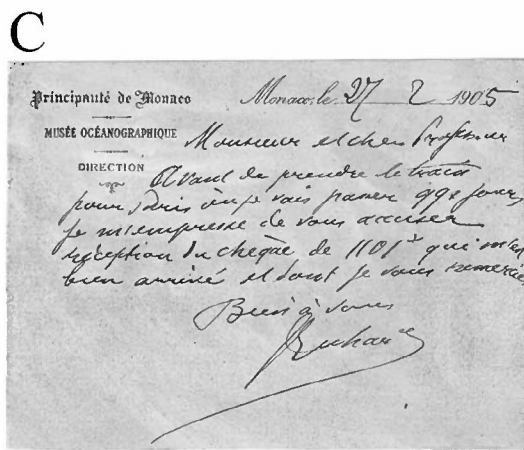 C
Principauté de Monaco
MUSÉE OCÉANOGRAPHIQUE
DIRECTION
Monaco, le 27 2 1905
Monsieur et cher Professeur
Avant de prendre le train
pour Paris où je vais passer qqs jours
je m'empresse de vous accuser
réception du chèque de 1101 qui m'est
bien arrivé et dont je vous remercie
Bien à vous
JRichard